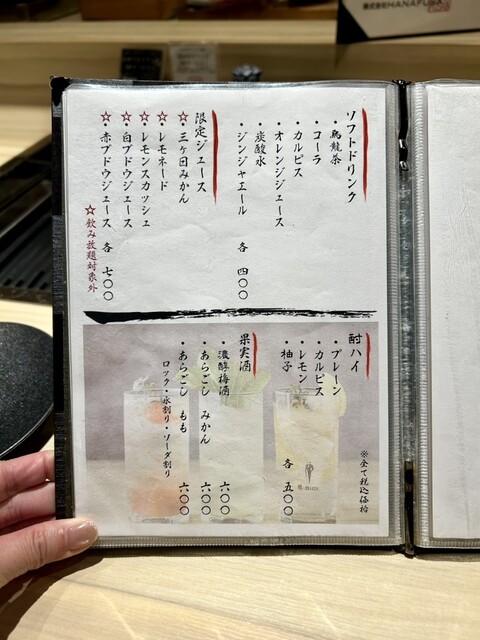 株式会社HANAFUSA
ソフトドリンク
・烏龍茶
・コーラ
・カルピス
・オレンジジュース
・炭酸水
・ジンジャエール 各 四〇〇
限定ジュース
☆・三ヶ日みかん
☆・レモネード
☆・レモンスカッシュ
☆・白ブドウジュース
☆・赤ブドウジュース 各 七〇〇
☆飲み放題対象外
※全て税込価格
酎ハイ
・プレーン
・カルピス
・レモン
・柚子 各 五〇〇
果実酒
・濃醇梅酒 六〇〇
・あらごし みかん 六〇〇
・あらごし もも 六〇〇
ロック・水割り・ソーダ割り